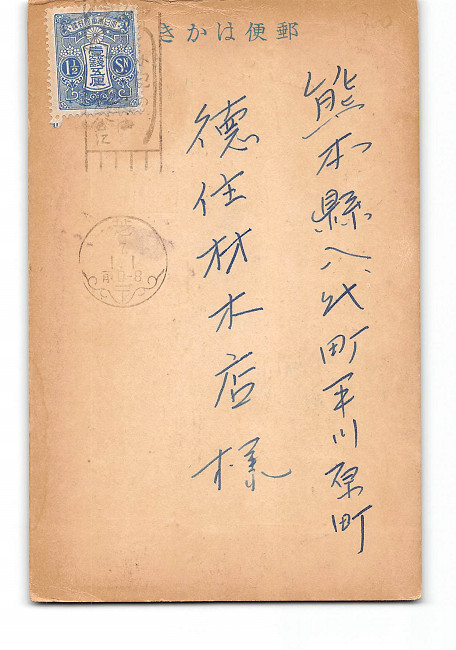 郵便はかき
壹錢五厘
1½ Sn
熊本縣八代町平川原町
德住材木店様